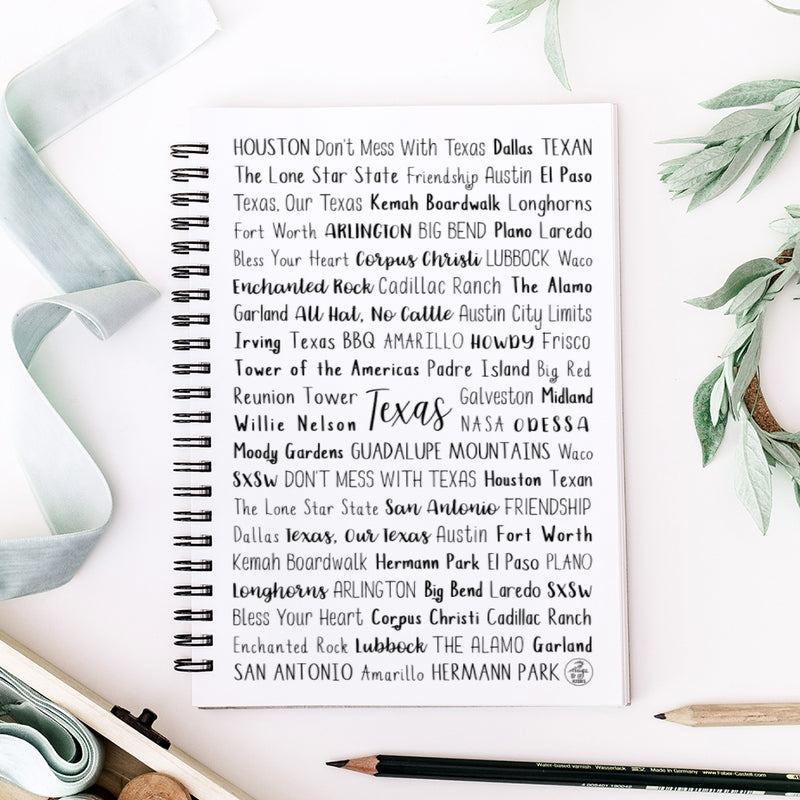 HOUSTON Don't Mess With Texas Dallas TEXAN
The Lone Star State Friendship Austin El Paso
Texas, Our Texas Kemah Boardwalk Longhorns
Fort Worth ARLINGTON BIG BEND Plano Laredo
Bless Your Heart Corpus Christi LUBBOCK Waco
Enchanted Rock Cadillac Ranch The Alamo
Garland All Hat, No Cattle Austin City Limits
Irving Texas BBQ AMARILLO HOWDY Frisco
Tower of the Americas Padre Island Big Red
Reunion Tower Texas Galveston Midland
Willie Nelson NASA ODESSA
Moody Gardens GUADALUPE MOUNTAINS Waco
SXSW DON'T MESS WITH TEXAS Houston Texan
The Lone Star State San Antonio FRIENDSHIP
Dallas Texas, Our Texas Austin Fort Worth
Kemah Boardwalk Hermann Park El Paso PLANO
Longhorns ARLINGTON Big Bend Laredo SXSW
Bless Your Heart Corpus Christi Cadillac Ranch
Enchanted Rock Lubbock THE ALAMO Garland
SAN ANTONIO Amarillo HERMANN PARK
Water-based varnish Wasserlack Made in Germany www.Faber-Castell.com